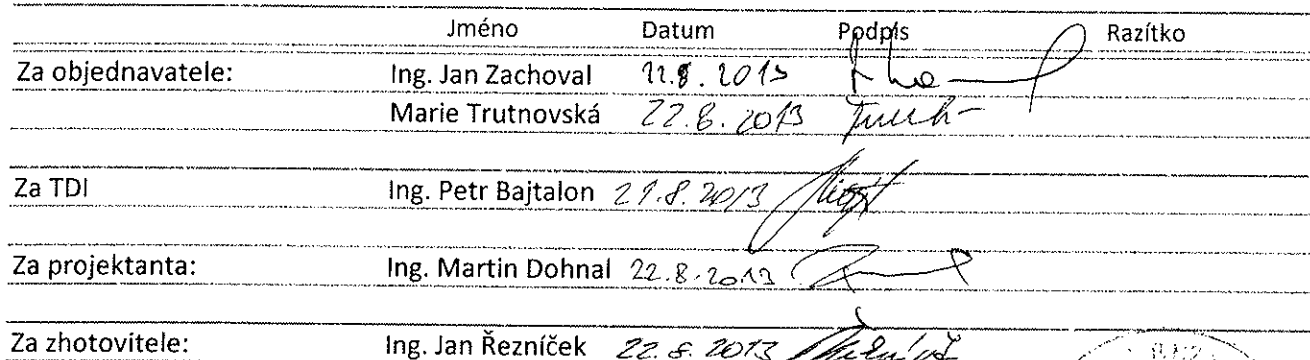 Jméno Datum Podpis Razítko
Za objednavatele: Ing. Jan Zachoval 22.8.2013
Marie Trutnovská 22.8.2013
Za TDI Ing. Petr Bajtalon 21.8.2013
Za projektanta: Ing. Martin Dohnal 22.8.2013
Za zhotovitele: Ing. Jan Řezníček 22.8.2013